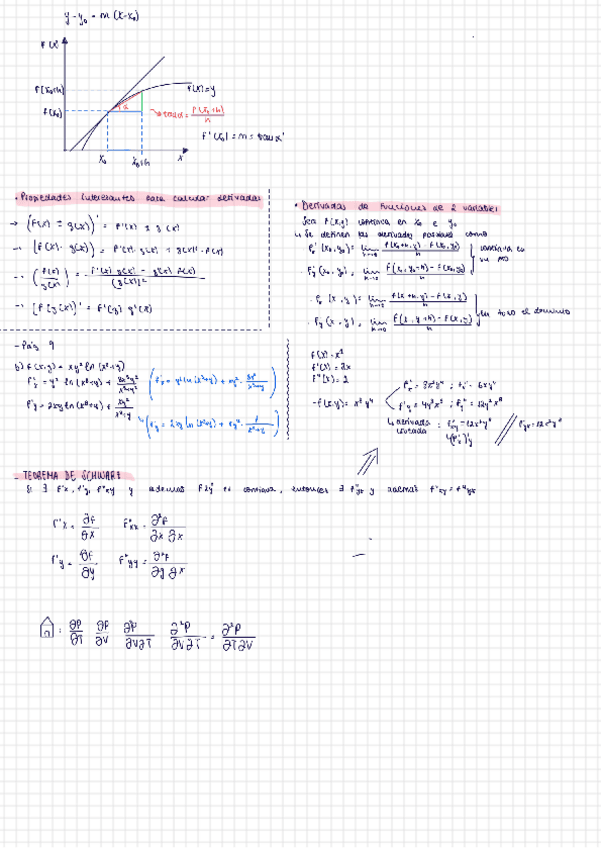 y - y₀ = m (x-x₀)
f(x)
f(x₀+h)
f(x₀)
f(x)=y
α
→ tanα = f(x₀+h)/h
f'(x₀) = m = tanα'
x₀
x₀+h
x
• Propiedades interesantes para calcular derivadas
→ (f(x) ± g(x))' = f'(x) ± g(x)
(f(x) · g(x)) = f'(x) · g(x) + g(x)' · f(x)
(f(x)/g(x)) = f'(x) g(x) - g(x) f(x) / (g(x))²
[f(g(x))]' = f'(g) g'(x)
• Derivadas de funciones de 2 variables
Sea f(x,y) continua en x₀ e y₀
↳ Se definen las derivadas parciales como
(x₀,y₀) = lim h→0 f(x₀+h,y) - f(x₀,y₀) / h
continua en un pto
(x₀,y₀) = lim h→0 f(x₀,y₀+h) - f(x₀,y₀) / h
(x,y) = lim h→0 f(x+h,y) - f(x,y) / h
en todo el dominio
(x,y) = lim h→0 f(x,y+h) - f(x,y) / h
- Pág 9
b) f(x,y) = xy² ln(x³+y)
f'x = y² ln(x³+y) + 3x³y²/x³+y
f'y = 2xy ln(x³+y) + xy²/x³+y
(f'x = y² ln(x³+y) + xy² · 3x²/x³+y)
(f'y = 2xy ln(x³+y) + xy² · 1/x³+y)
f(x) = x²
f'(x) = 2x
f''(x) = 2
- f(x,y) = x³y⁴
f'x = 3x²y⁴ ; = 6xy⁴
f'y = 4y³x³ ; = 12y²x³
↳ derivada cruzada : f''xy = 12x²y³
(f'x)'y
f''yx = 12x²y³
- TEOREMA DE SCHWARZ
Si ∃ f'x, f'y, f''xy y además f''xy es continua, entonces ∃ f''yx y además f''xy = f''yx
f'x = ∂f/∂x f''xx = ∂²f/∂x ∂x
f'y = ∂f/∂y f''yy = ∂²f/∂y ∂x
: ∂P/∂T ∂P/∂V ∂P/∂V∂T ∂²P/∂V∂T = ∂²P/∂T∂V